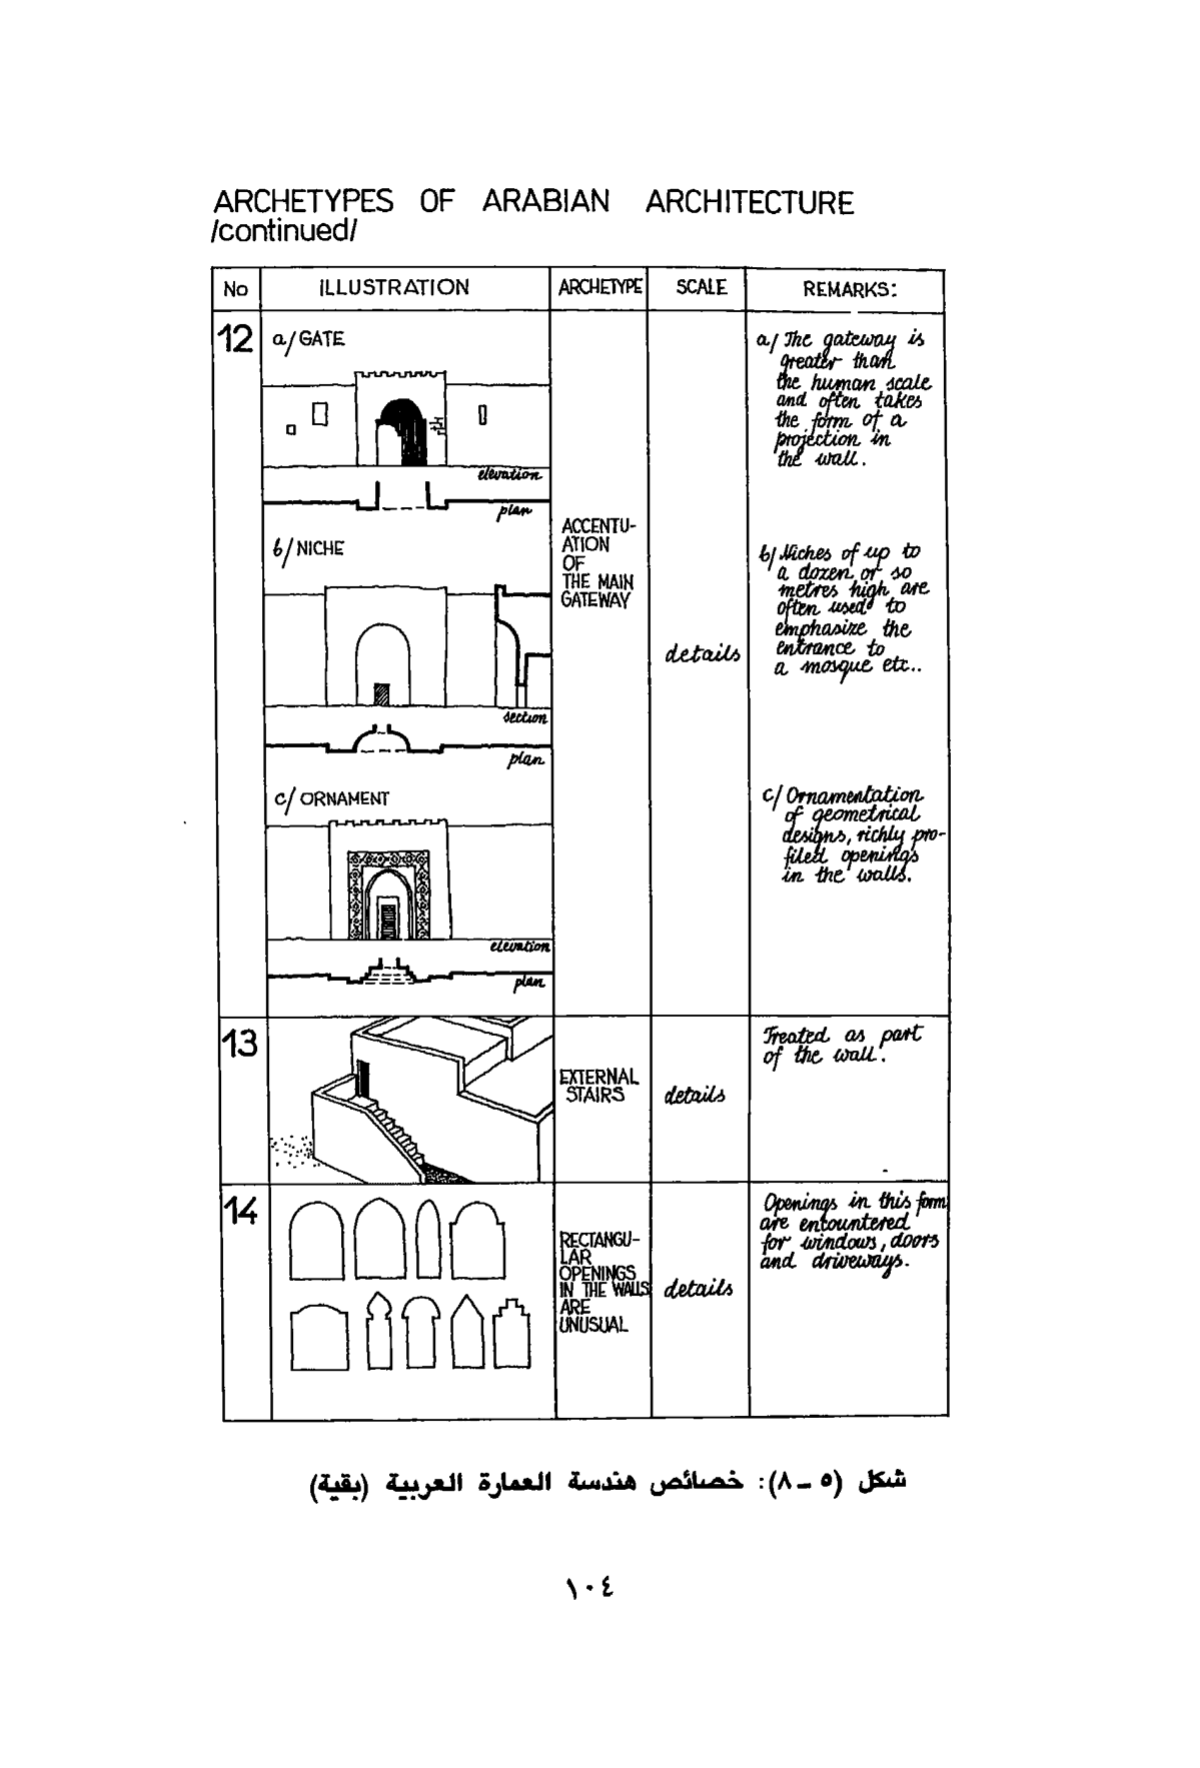 ARCHETYPES OF ARABIAN ARCHITECTURE
/continued/
No ILLUSTRATION ARCHETYPE SCALE REMARKS:
12
a/ GATE
elevation
plan
b/ NICHE
section
plan
c/ ORNAMENT
elevation
plan
ACCENTU-
ATION
OF
THE MAIN
GATEWAY
details
a/ The gateway is
greater than
the human scale
and often takes
the form of a
projection in
the wall.
b/ Niches of up to
a dozen or so
metres high are
often used to
emphasize the
entrance to
a mosque etc..
c/ Ornamentation
of geometrical
designs, richly pro-
filed openings
in the walls.
13
EXTERNAL
STAIRS
details
Treated as part
of the wall.
14
RECTANGU-
LAR
OPENINGS
IN THE WALLS
ARE
UNUSUAL
details
Openings in this form
are encountered
for windows, doors
and driveways.
شكل (٥ ــ ٨): خصائص هندسة العمارة العربية (بقية)
١٠٤